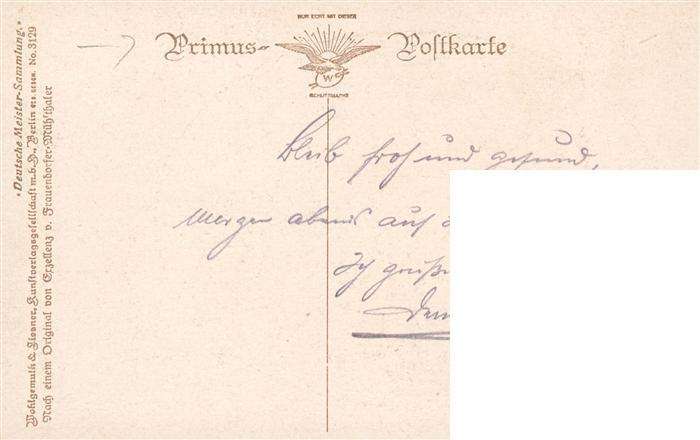 NUR ECHT MIT DIESER
Primus-Postkarte
W
SCHUTZMARKE
Bleib froh und gesund,
morgen abend auf
Ich grüße
Dein
"Deutsche Meister-Sammlung."
Wohlgemuth & Lissner, Kunstverlagsgesellschaft m.b.H., Berlin No. 3129
Nach einem Original von Exzellenz v. Frauendorfer-Mühlthaler